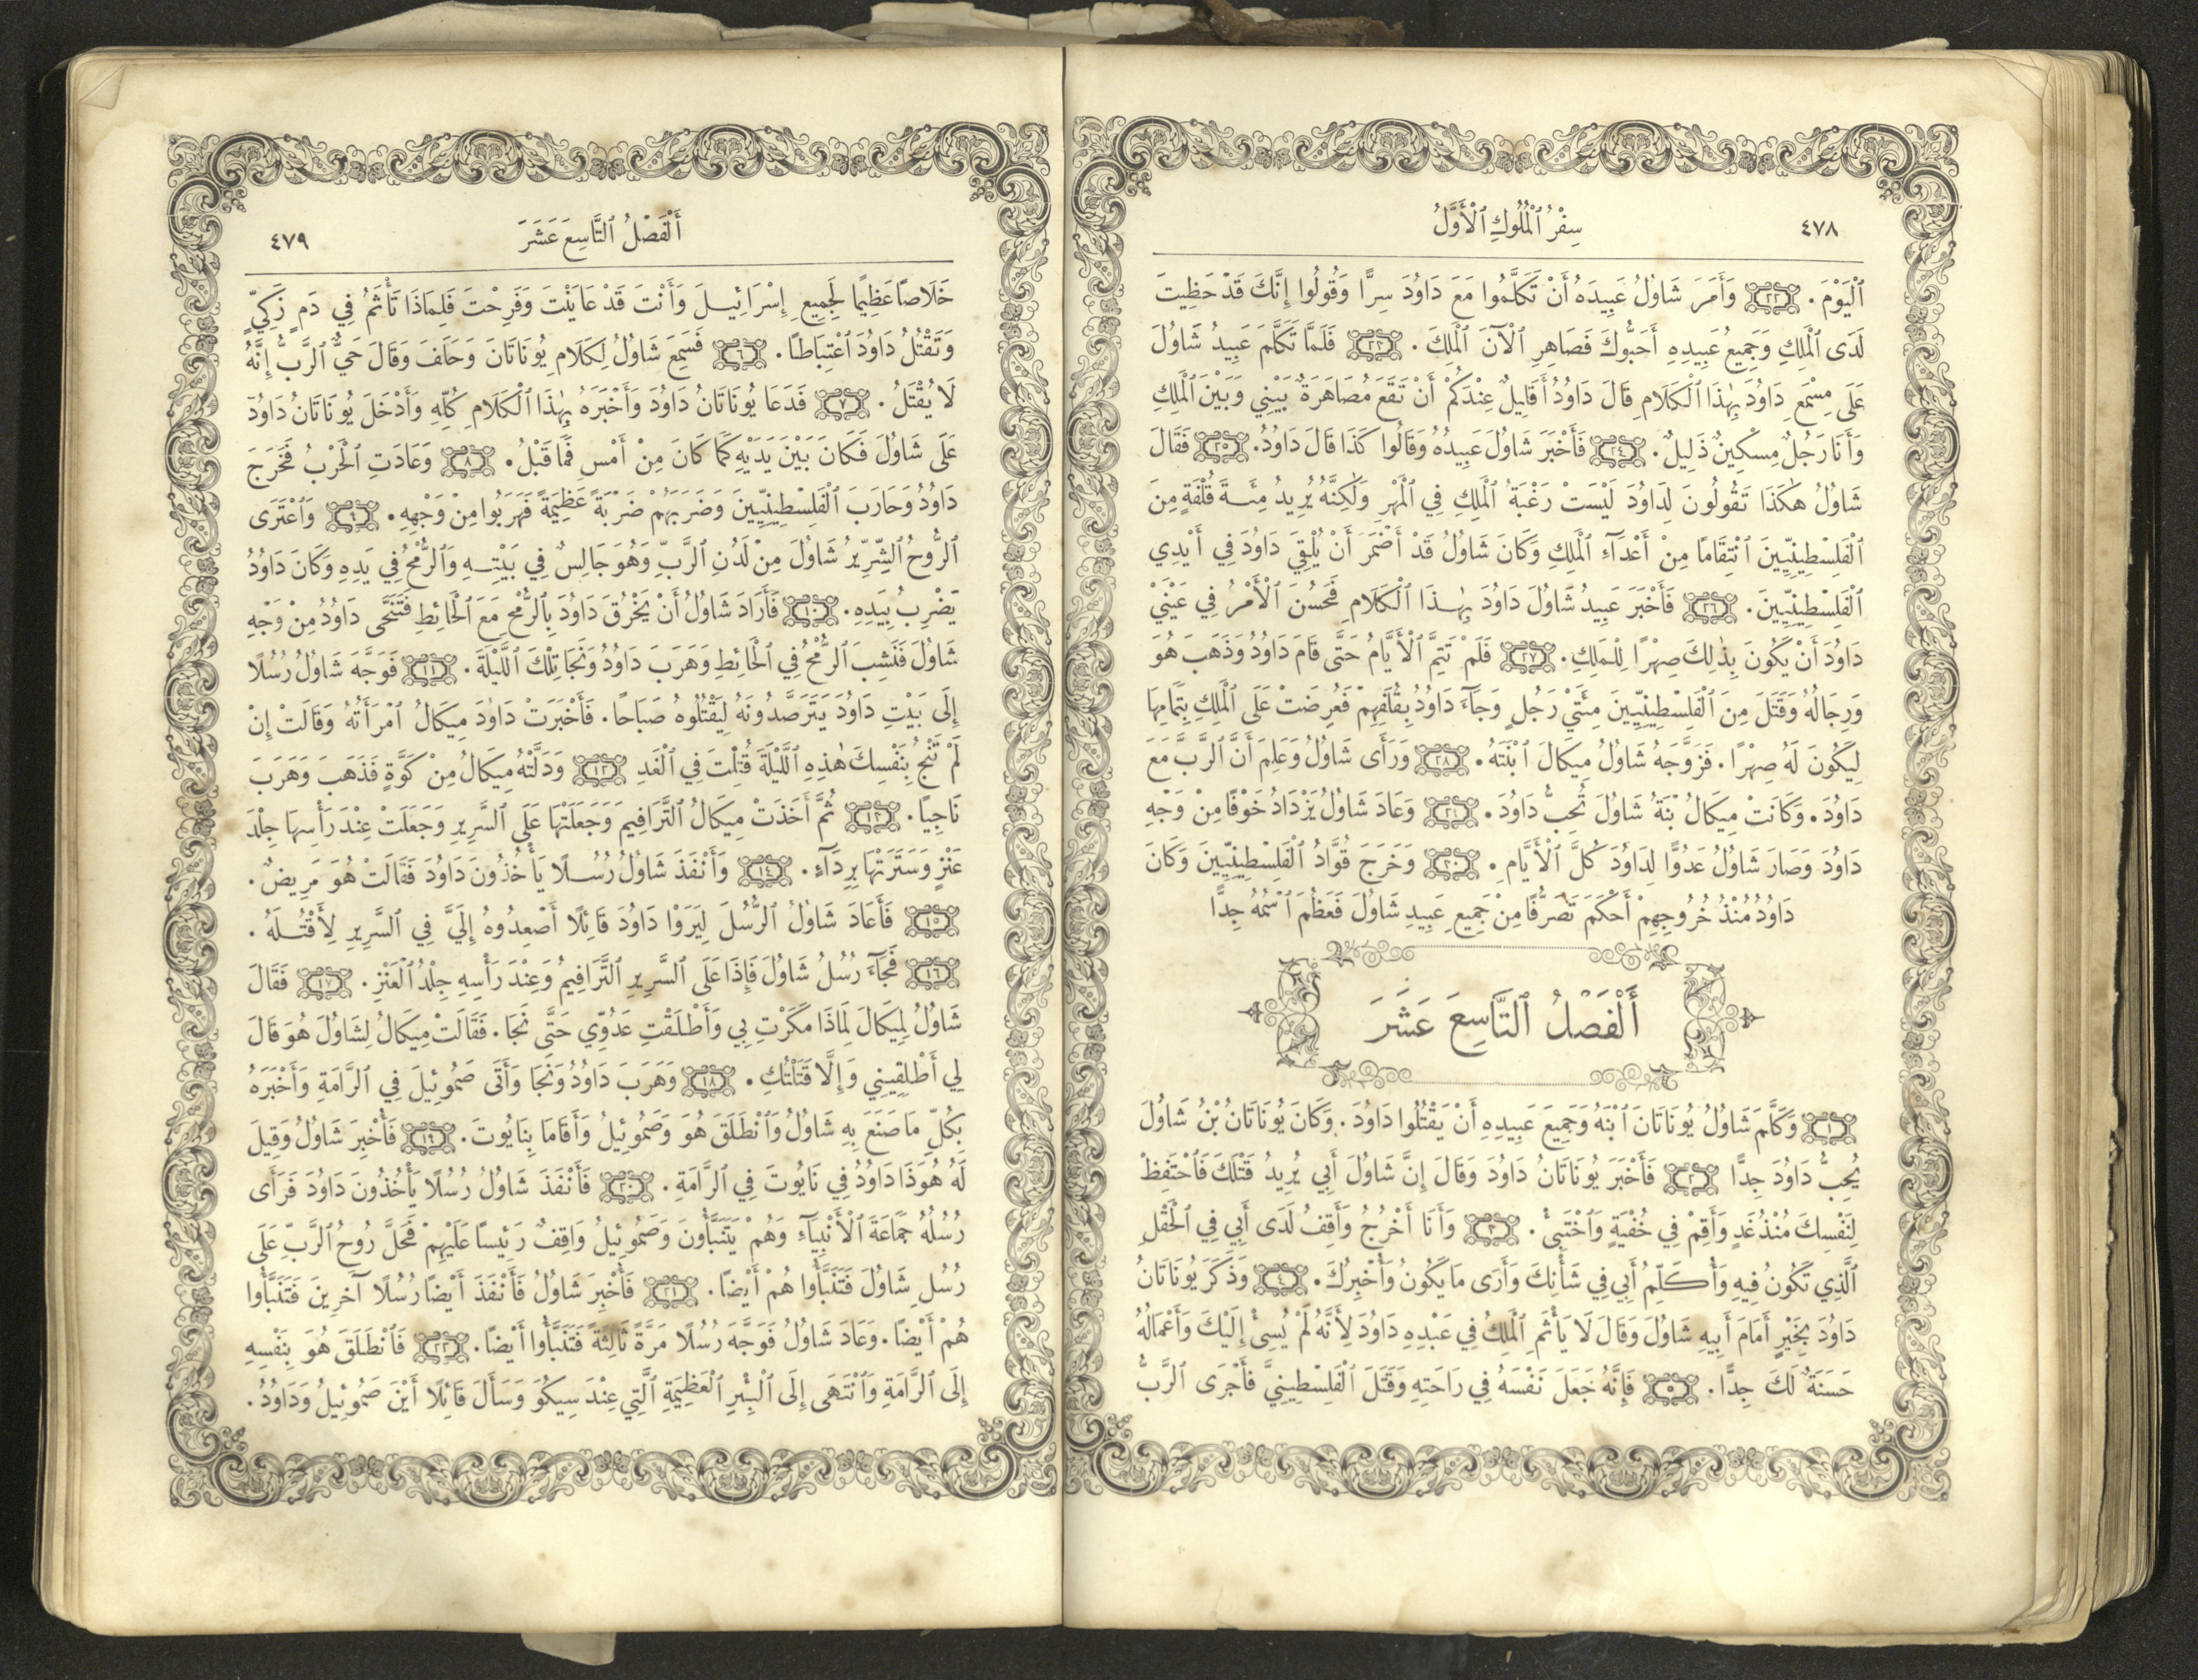 ٤٧٨
سِفْرُ ٱلْمُلُوكِ ٱلْأَوَّلُ
ٱلْيَوْمَ. ٢٢ وَأَمَرَ شَاوُلُ عَبِيدَهُ أَنْ تَكَلَّمُوا مَعَ دَاوُدَ سِرًّا وَقُولُوا إِنَّكَ قَدْ حَظِيتَ
لَدَى ٱلْمَلِكِ وَجَمِيعُ عَبِيدِهِ أَحَبُّوكَ فَصَاهِرِ ٱلْآنَ ٱلْمَلِكَ. ٢٣ فَلَمَّا تَكَلَّمَ عَبِيدُ شَاوُلَ
عَلَى مِسْمَعِ دَاوُدَ بِهٰذَا ٱلْكَلَامِ قَالَ دَاوُدُ أَقَلِيلٌ عِنْدَكُمْ أَنْ تَقَعَ مُصَاهَرَةٌ بَيْنِي وَبَيْنَ ٱلْمَلِكِ
وَأَنَا رَجُلٌ مِسْكِينٌ ذَلِيلٌ. ٢٤ فَأَخْبَرَ شَاوُلَ عَبِيدُهُ وَقَالُوا كَذَا قَالَ دَاوُدُ. ٢٥ فَقَالَ
شَاوُلُ هٰكَذَا تَقُولُونَ لِدَاوُدَ لَيْسَتْ رَغْبَةُ ٱلْمَلِكِ فِي ٱلْمَهْرِ وَلٰكِنَّهُ يُرِيدُ مِئَةَ قُلْفَةٍ مِنَ
ٱلْفَلِسْطِينِيِّينَ ٱنْتِقَامًا مِنْ أَعْدَآءِ ٱلْمَلِكِ وَكَانَ شَاوُلُ قَدْ أَضْمَرَ أَنْ يُلْقِيَ دَاوُدَ فِي أَيْدِي
ٱلْفَلِسْطِينِيِّينَ. ٢٦ فَأَخْبَرَ عَبِيدُ شَاوُلَ دَاوُدَ بِهٰذَا ٱلْكَلَامِ فَحَسُنَ ٱلْأَمْرُ فِي عَيْنَيْ
دَاوُدَ أَنْ يَكُونَ بِذٰلِكَ صِهْرًا لِلْمَلِكِ. ٢٧ فَلَمْ تَتِمَّ ٱلْأَيَّامُ حَتَّى قَامَ دَاوُدُ وَذَهَبَ هُوَ
وَرِجَالُهُ وَقَتَلَ مِنَ ٱلْفَلِسْطِينِيِّينَ مِئَتَيْ رَجُلٍ وَجَآءَ دَاوُدُ بِقُلَفِهِمْ فَعُرِضَتْ عَلَى ٱلْمَلِكِ بِتَمَامِهَا
لِيَكُونَ لَهُ صِهْرًا. فَزَوَّجَهُ شَاوُلُ مِيكَالَ ٱبْنَتَهُ. ٢٨ وَرَأَى شَاوُلُ وَعَلِمَ أَنَّ ٱلرَّبَّ مَعَ
دَاوُدَ. وَكَانَتْ مِيكَالُ ٱبْنَةُ شَاوُلَ تُحِبُّ دَاوُدَ. ٢٩ وَعَادَ شَاوُلُ يَزْدَادُ خَوْفًا مِنْ وَجْهِ
دَاوُدَ وَصَارَ شَاوُلُ عَدُوًّا لِدَاوُدَ كُلَّ ٱلْأَيَّامِ. ٣٠ وَخَرَجَ قُوَّادُ ٱلْفَلِسْطِينِيِّينَ وَكَانَ
دَاوُدُ مُنْذُ خُرُوجِهِمْ أَحْكَمَ تَصَرُّفًا مِنْ جَمِيعِ عَبِيدِ شَاوُلَ فَعَظُمَ ٱسْمُهُ جِدًّا
أَلْفَصْلُ ٱلتَّاسِعَ عَشَرَ
١ وَكَلَّمَ شَاوُلُ يُونَاتَانَ ٱبْنَهُ وَجَمِيعَ عَبِيدِهِ أَنْ يَقْتُلُوا دَاوُدَ. وَكَانَ يُونَاتَانُ بْنُ شَاوُلَ
يُحِبُّ دَاوُدَ جِدًّا ٢ فَأَخْبَرَ يُونَاتَانُ دَاوُدَ وَقَالَ إِنَّ شَاوُلَ أَبِي يُرِيدُ قَتْلَكَ فَٱحْتَفِظْ
لِنَفْسِكَ مُنْذُ غَدٍ وَأَقِمْ فِي خُفْيَةٍ وَٱخْتَبِئْ. ٣ وَأَنَا أَخْرُجُ وَأَقِفُ لَدَى أَبِي فِي ٱلْحَقْلِ
ٱلَّذِي تَكُونُ فِيهِ وَأُكَلِّمُ أَبِي فِي شَأْنِكَ وَأَرَى مَا يَكُونُ وَأُخْبِرُكَ. ٤ وَذَكَرَ يُونَاتَانُ
دَاوُدَ بِخَيْرٍ أَمَامَ أَبِيهِ شَاوُلَ وَقَالَ لَا يَأْثَمِ ٱلْمَلِكُ فِي عَبْدِهِ دَاوُدَ لِأَنَّهُ لَمْ يُسِئْ إِلَيْكَ وَأَعْمَالُهُ
حَسَنَةٌ لَكَ جِدًّا. ٥ فَإِنَّهُ جَعَلَ نَفْسَهُ فِي رَاحَتِهِ وَقَتَلَ ٱلْفَلِسْطِينِيَّ فَأَجْرَى ٱلرَّبُّ
أَلْفَصْلُ ٱلتَّاسِعَ عَشَرَ
٤٧٩
خَلَاصًا عَظِيمًا لِجَمِيعِ إِسْرَائِيلَ وَأَنْتَ قَدْ عَايَنْتَ وَفَرِحْتَ فَلِمَاذَا تَأْثَمُ فِي دَمٍ زَكِيٍّ
وَتَقْتُلُ دَاوُدَ ٱعْتِبَاطًا. ٦ فَسَمِعَ شَاوُلُ لِكَلَامِ يُونَاتَانَ وَحَلَفَ وَقَالَ حَيٌّ ٱلرَّبُّ إِنَّهُ
لَا يُقْتَلُ. ٧ فَدَعَا يُونَاتَانُ دَاوُدَ وَأَخْبَرَهُ بِهٰذَا ٱلْكَلَامِ كُلِّهِ وَأَدْخَلَ يُونَاتَانُ دَاوُدَ
عَلَى شَاوُلَ فَكَانَ بَيْنَ يَدَيْهِ كَمَا كَانَ مِنْ أَمْسِ فَمَا قَبْلُ. ٨ وَعَادَتِ ٱلْحَرْبُ فَخَرَجَ
دَاوُدُ وَحَارَبَ ٱلْفَلِسْطِينِيِّينَ وَضَرَبَهُمْ ضَرْبَةً عَظِيمَةً فَهَرَبُوا مِنْ وَجْهِهِ. ٩ وَٱعْتَرَى
ٱلرُّوحُ ٱلشِّرِّيرُ شَاوُلَ مِنْ لَدُنِ ٱلرَّبِّ وَهُوَ جَالِسٌ فِي بَيْتِهِ وَٱلرُّمْحُ فِي يَدِهِ وَكَانَ دَاوُدُ
يَضْرِبُ بِيَدِهِ. ١٠ فَأَرَادَ شَاوُلُ أَنْ يَخْرُقَ دَاوُدَ بِٱلرُّمْحِ مَعَ ٱلْحَائِطِ فَتَنَحَّى دَاوُدُ مِنْ وَجْهِ
شَاوُلَ فَنَشِبَ ٱلرُّمْحُ فِي ٱلْحَائِطِ وَهَرَبَ دَاوُدُ وَنَجَا تِلْكَ ٱللَّيْلَةَ. ١١ فَوَجَّهَ شَاوُلُ رُسُلًا
إِلَى بَيْتِ دَاوُدَ يَتَرَصَّدُونَهُ لِيَقْتُلُوهُ صَبَاحًا. فَأَخْبَرَتْ دَاوُدَ مِيكَالُ ٱمْرَأَتُهُ وَقَالَتْ إِنْ
لَمْ تَنْجُ بِنَفْسِكَ هٰذِهِ ٱللَّيْلَةَ قُتِلْتَ فِي ٱلْغَدِ ١٢ وَدَلَّتْهُ مِيكَالُ مِنْ كَوَّةٍ فَذَهَبَ وَهَرَبَ
نَاجِيًا. ١٣ ثُمَّ أَخَذَتْ مِيكَالُ ٱلتَّرَافِيمَ وَجَعَلَتْهَا عَلَى ٱلسَّرِيرِ وَجَعَلَتْ عِنْدَ رَأْسِهَا جِلْدَ
عَنْزٍ وَسَتَرَتْهَا بِرِدَآءٍ. ١٤ وَأَنْفَذَ شَاوُلُ رُسُلًا يَأْخُذُونَ دَاوُدَ فَقَالَتْ هُوَ مَرِيضٌ.
١٥ فَأَعَادَ شَاوُلُ ٱلرُّسُلَ لِيَرَوْا دَاوُدَ قَائِلًا أَصْعِدُوهُ إِلَيَّ فِي ٱلسَّرِيرِ لِأَقْتُلَهُ.
١٦ فَجَآءَ رُسُلُ شَاوُلَ فَإِذَا عَلَى ٱلسَّرِيرِ ٱلتَّرَافِيمُ وَعِنْدَ رَأْسِهِ جِلْدُ ٱلْعَنْزِ. ١٧ فَقَالَ
شَاوُلُ لِمِيكَالَ لِمَاذَا مَكَرْتِ بِي وَأَطْلَقْتِ عَدُوِّي حَتَّى نَجَا. فَقَالَتْ مِيكَالُ لِشَاوُلَ هُوَ قَالَ
لِي أَطْلِقِينِي وَإِلَّا قَتَلْتُكِ. ١٨ وَهَرَبَ دَاوُدُ وَنَجَا وَأَتَى صَمُوئِيلَ فِي ٱلرَّامَةِ وَأَخْبَرَهُ
بِكُلِّ مَا صَنَعَ بِهِ شَاوُلُ وَٱنْطَلَقَ هُوَ وَصَمُوئِيلُ وَأَقَامَا بِنَايُوتَ. ١٩ فَأُخْبِرَ شَاوُلُ وَقِيلَ
لَهُ هُوَذَا دَاوُدُ فِي نَايُوتَ فِي ٱلرَّامَةِ. ٢٠ فَأَنْفَذَ شَاوُلُ رُسُلًا يَأْخُذُونَ دَاوُدَ فَرَأَى
رُسُلُهُ جَمَاعَةَ ٱلْأَنْبِيَآءِ وَهُمْ يَتَنَبَّأُونَ وَصَمُوئِيلُ وَاقِفٌ رَئِيسًا عَلَيْهِمْ فَحَلَّ رُوحُ ٱلرَّبِّ عَلَى
رُسُلِ شَاوُلَ فَتَنَبَّأُوا هُمْ أَيْضًا. ٢١ فَأُخْبِرَ شَاوُلُ فَأَنْفَذَ أَيْضًا رُسُلًا آخَرِينَ فَتَنَبَّأُوا
هُمْ أَيْضًا. وَعَادَ شَاوُلُ فَوَجَّهَ رُسُلًا مَرَّةً ثَالِثَةً فَتَنَبَّأُوا أَيْضًا. ٢٢ فَٱنْطَلَقَ هُوَ بِنَفْسِهِ
إِلَى ٱلرَّامَةِ وَٱنْتَهَى إِلَى ٱلْبِئْرِ ٱلْعَظِيمَةِ ٱلَّتِي عِنْدَ سِيكُوَ وَسَأَلَ قَائِلًا أَيْنَ صَمُوئِيلُ وَدَاوُدُ.